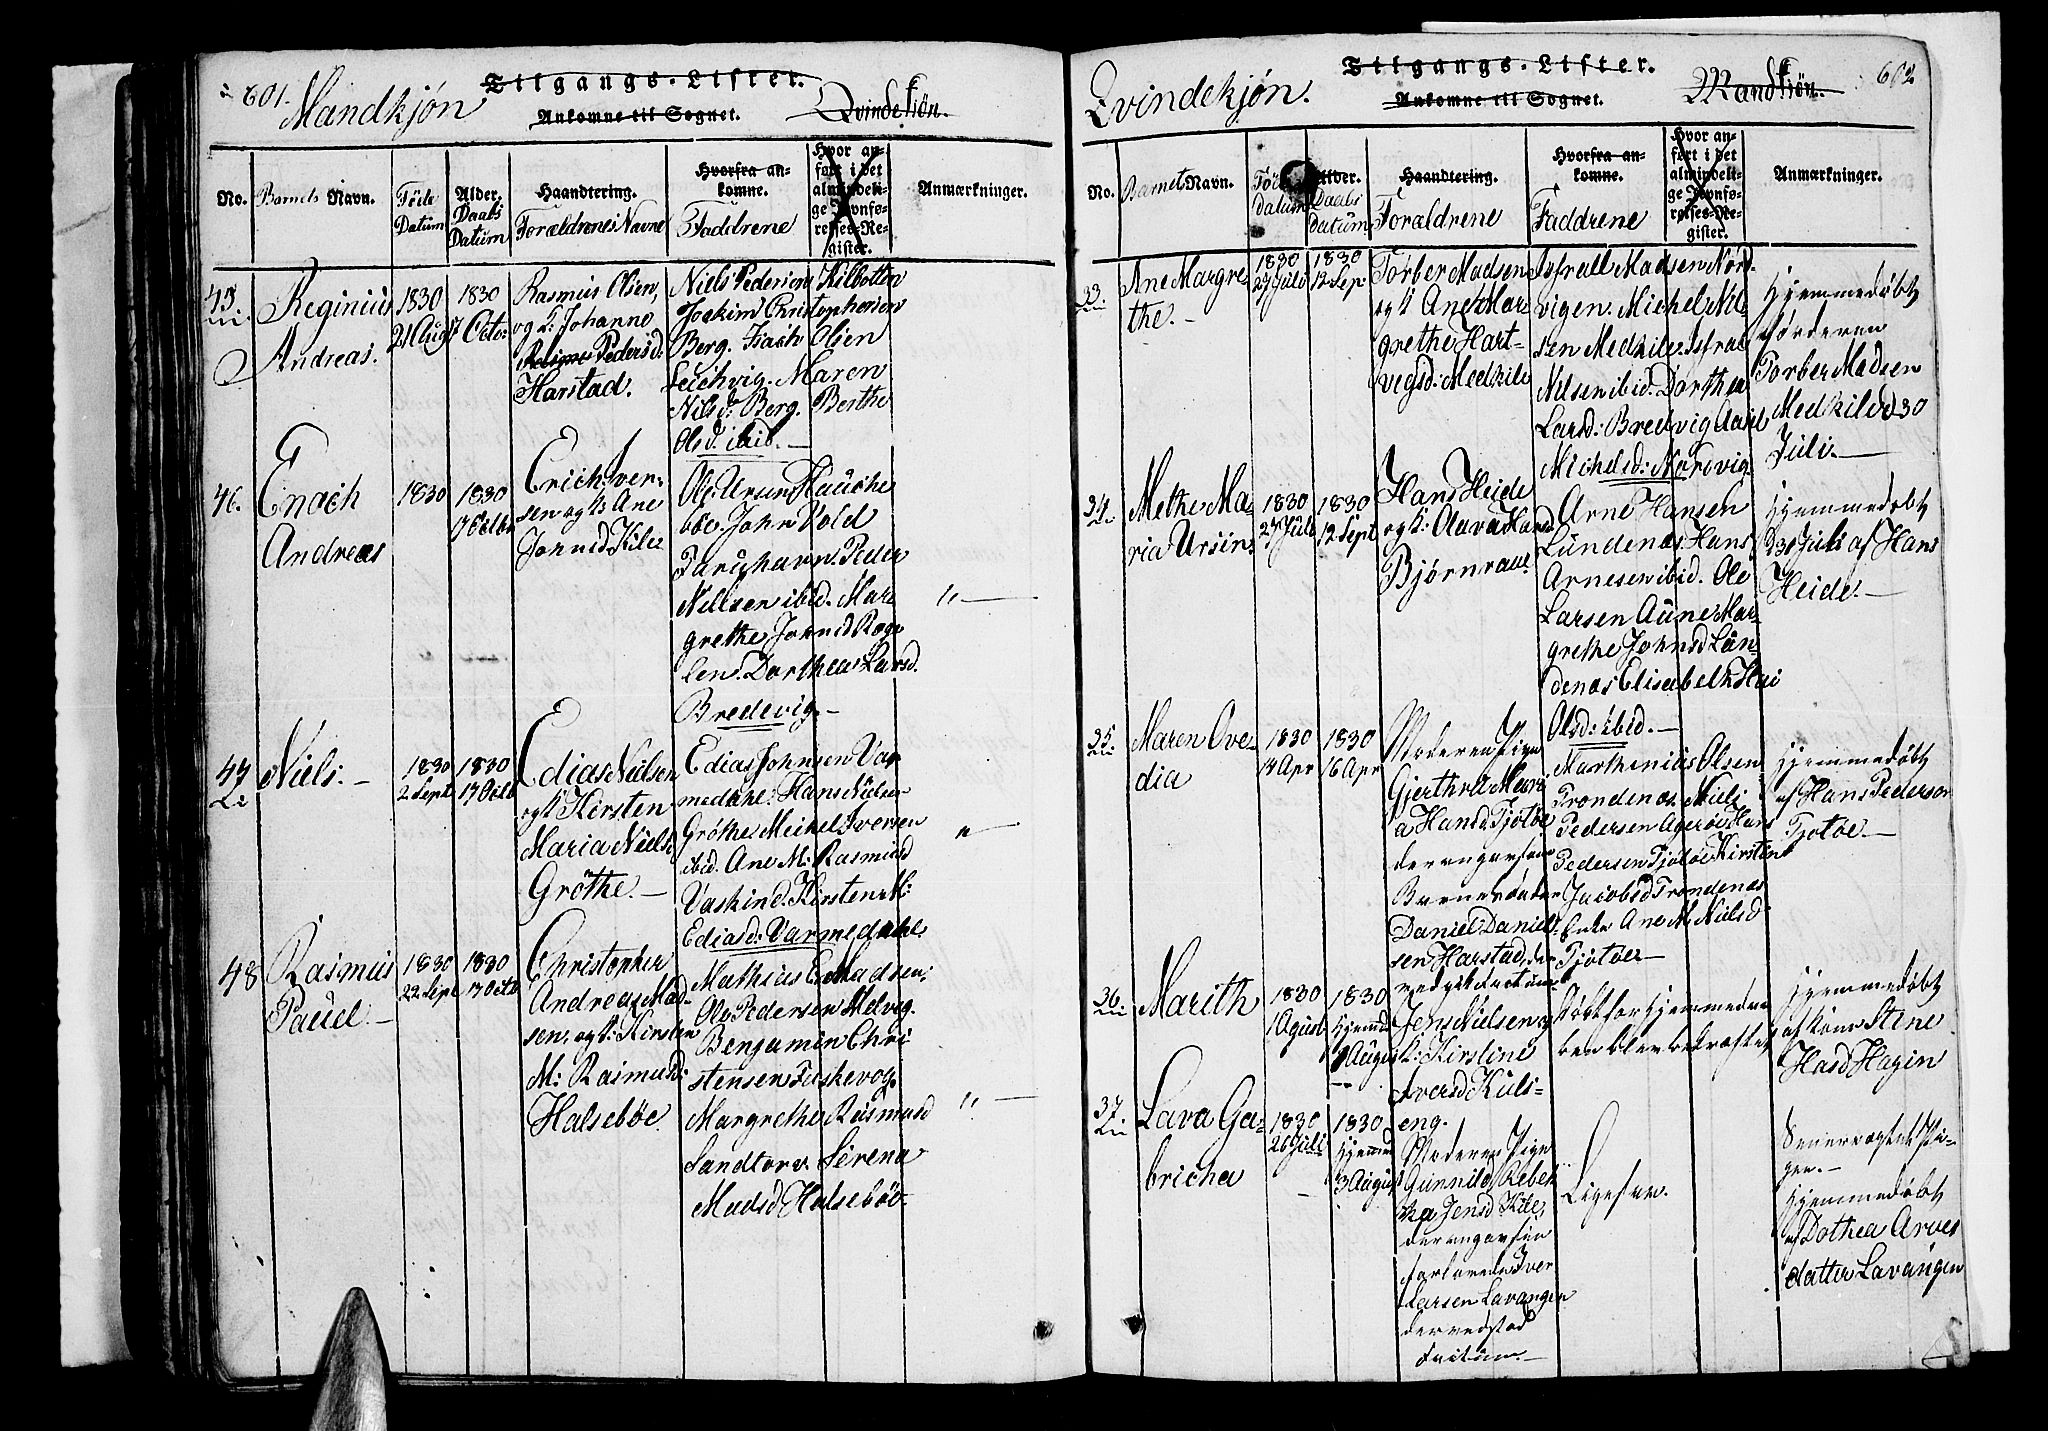 601.
Mandkjøn
Tilgangs-Lister.
Ankomne til Sognet.
Qvindekjøn.
No.
Barnets Navn.
Föde
Datum
Alder.
Daabs
Datum
Haandtering.
Forældrenes Navne
Hvorfra an-
komne.
Faddrene
Hvor an-
ført i det
almindeli-
ge Jevnfø-
relses-Re-
gister.
Anmærkninger.
45.
Reginius
Andreas.
1830
21 Aug
1830
17 Octo:
Rasmus Olsen,
og k: Johanne
Pedersd:
Harstad.
Niels Pedersen Kilbotten
Joakim Christophersen
Berg. Isach Olsen
Seljevig. Maren
Nilsd: Berg. Berthe
Olsd. ibid. —
46.
Enoch
Andreas
1830
1830
17 Octbr
Erich Iver-
sen og k: Ane
Johnsd Kile
Ole Ursin Hauche
böe. John Vold
Peder
Nielsen ibid. Mar
grethe Johnsd Rogs
len. Dorthea Larsd.
Bredevig. —
" —
47
Niels. —
1830
2 Sept
1830
17 Octb
Edias Nielsen
og k Kirsten
Maria Nielsd
Gröthe. —
Edias Johnsen Var
medahl. Hans Nielsen
Gröthe Michel Iversen
ibid. Ane M: Rasmusd
Vaskind. Kirsten M:
Ediasd: Varmedahl.
" —
48
Rasmus
Paül. —
1830
22 Sept
1830
17 Octb
Christopher
Andreas Mad-
sen, og k: Kirsten
M: Rasmusd:
Halseböe
Mathias E Madsen:
Ole Pedersen Melvig.
Benjamin Chri
stensen Fuskevog.
Margrethe Rasmusd
Sandtorv. Serena
Madsd Halseböe.
" —
602
Qvindekjön.
Tilgangs-Lister.
Ankomne til Sognet.
Mandkjøn.
No.
Barnets Navn.
Föde
Datum
Alder.
Daabs
Datum
Haandtering.
Forældrene
Hvorfra an-
komne.
Faddrene
Hvor an-
ført i det
almindeli-
ge Jevnfø-
relses-Re-
gister.
Anmærkninger.
33.
Ane Margre-
the. —
1830
27 Juli
1830
12 Sep
Torber Madsen
og k Ane Mar-
grethe Hart-
vigsd: Medkile
Isfrall Madsen Nord-
vigen. Michel Nil-
sen Medkile. Isfrael
Nilsen ibid. Dorthea
Larsd: Bredvig
Michelsd: Nordvig
Hjemmedøbt
Torber Madsen
Medkile d 30
Juli. —
34.
Methe Ma-
ria Ursin.
1830
27 Juli
1830
12 Sept
Hans Heide
og k: Olava Hansd
Björnraae
Arne Hansen
Lundenæs Hans
Arnesen ibid. Ole
Larsen Aüne Mar-
grethe Johnsd Lün-
denæs Elisabeth
Olsd: ibid. —
Hjemmedøbt
d 30 Juli af Hans
Heide. —
35.
Maren Ove-
dia
1830
14 Apr
1830
16 Apr
Moderen Pigen
Gjerthru Mari
a Hansd Tjötøe
der angav sin
Daniel Daniel-
sen Harstad, der
Marthinius Olsen
Trondenæs Niels
Pedersen Agerøe Hans
Pedersen Tjötøe Kirsten
Jacobsd Trondenæs
Enke Ane M Nielsd
Tjötøe —
Hjemmedøbt
af Hans Pedersen
Tjotøe. —
36.
Marith
1830
1 Agust
1830
Hjemmed
August
Jens Nielsen og
k: Kirstine
Iversd Küls-
eng.
Hjemmedøbt
af Kone Stine
Hasd Hagin
37.
Lava Ga-
bricha
1830
26 Juli
—
1830
Hjemmed
3 August
Moderen Pige
Gunnild Rebek
ka Jensd Kile,
der angav sin
forlovede Iver
Larsen Lavangen
der vedstod
Factum. —
Ligesaa.
gen. —
Hjemmedøbt
af Dothea Arves
datter Lavangen